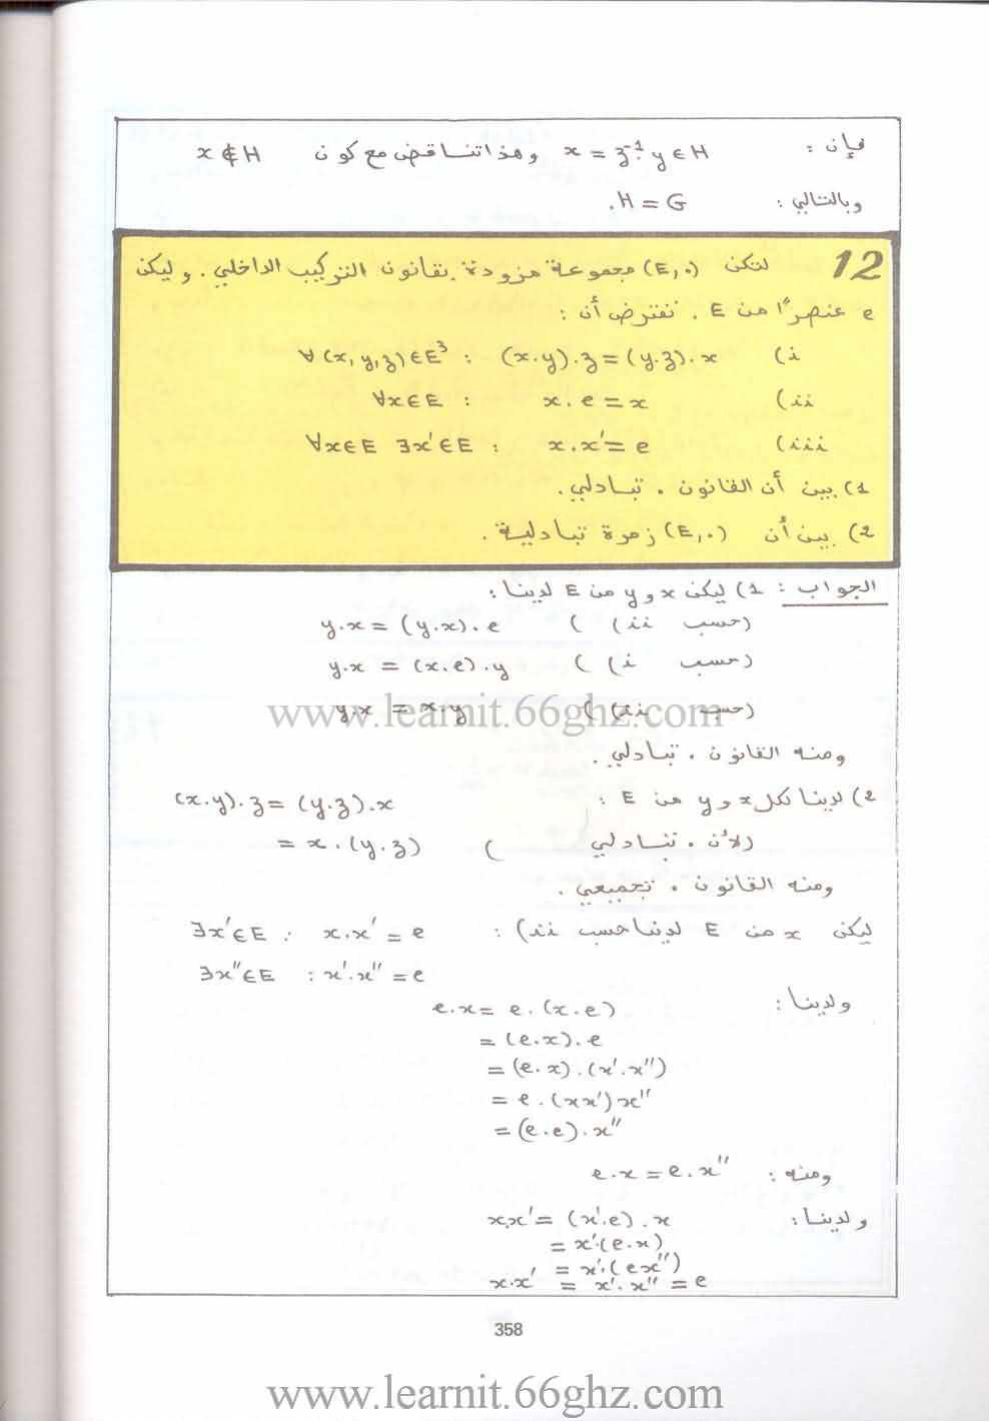 فإن : x = z⁻¹.y ∈ H وهذا تناقض مع كون x ∉ H
وبالتالي : H = G.
12 لتكن (E,.) مجموعة مزودة بقانون التركيب الداخلي . وليكن
e عنصرًا من E . نفترض أن :
i) ∀(x,y,z)∈E³ : (x.y).z = (y.z).x
ii) ∀x∈E : x.e = x
iii) ∀x∈E ∃x'∈E : x.x' = e
1) بين أن القانون . تبادلي.
2) بين أن (E,.) زمرة تبادلية .
الجواب : 1) ليكن x و y من E لدينا :
y.x = (y.x).e (حسب ii) )
y.x = (x.e).y (حسب i) )
y.x = x.y (حسب ii) )
www.learnit.66ghz.com
ومنه القانون . تبادلي .
2) لدينا لكل x و y من E : (x.y).z = (y.z).x
= x.(y.z) (لأن . تبادلي )
ومنه القانون . تجميعي .
ليكن x من E لدينا حسب iii) : ∃x'∈E : x.x' = e
∃x''∈E : x'.x'' = e
ولدينا : e.x = e.(x.e)
= (e.x).e
= (e.x).(x'.x'')
= e.(xx')x''
= (e.e).x''
ومنه : e.x = e.x''
ولدينا : x.x' = (x'.e).x
= x'.(e.x)
= x'.(ex'')
x.x' = x'.x'' = e
358
www.learnit.66ghz.com